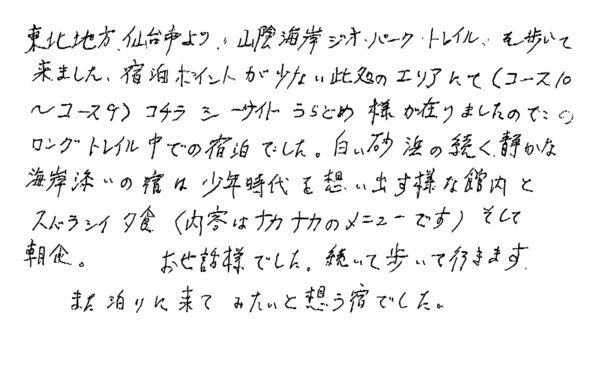 東北地方、仙台市より、山陰海岸ジオ・パーク・トレイル、を歩いて
来ました、宿泊ポイントが少ない此処のエリアにて(コース10
～コース9)コチラ シーサイドうらどめ 様が在りましたのでこの
ロングトレイル中での宿泊でした。白い砂浜の続く、静かな
海岸添いの宿は少年時代を想い出す様な館内と
スバラシイ夕食(内容はナカナカのメニューです)そして
朝食。 お世話様でした。続いて歩いて行きます
また泊りに来てみたいと想う宿でした。